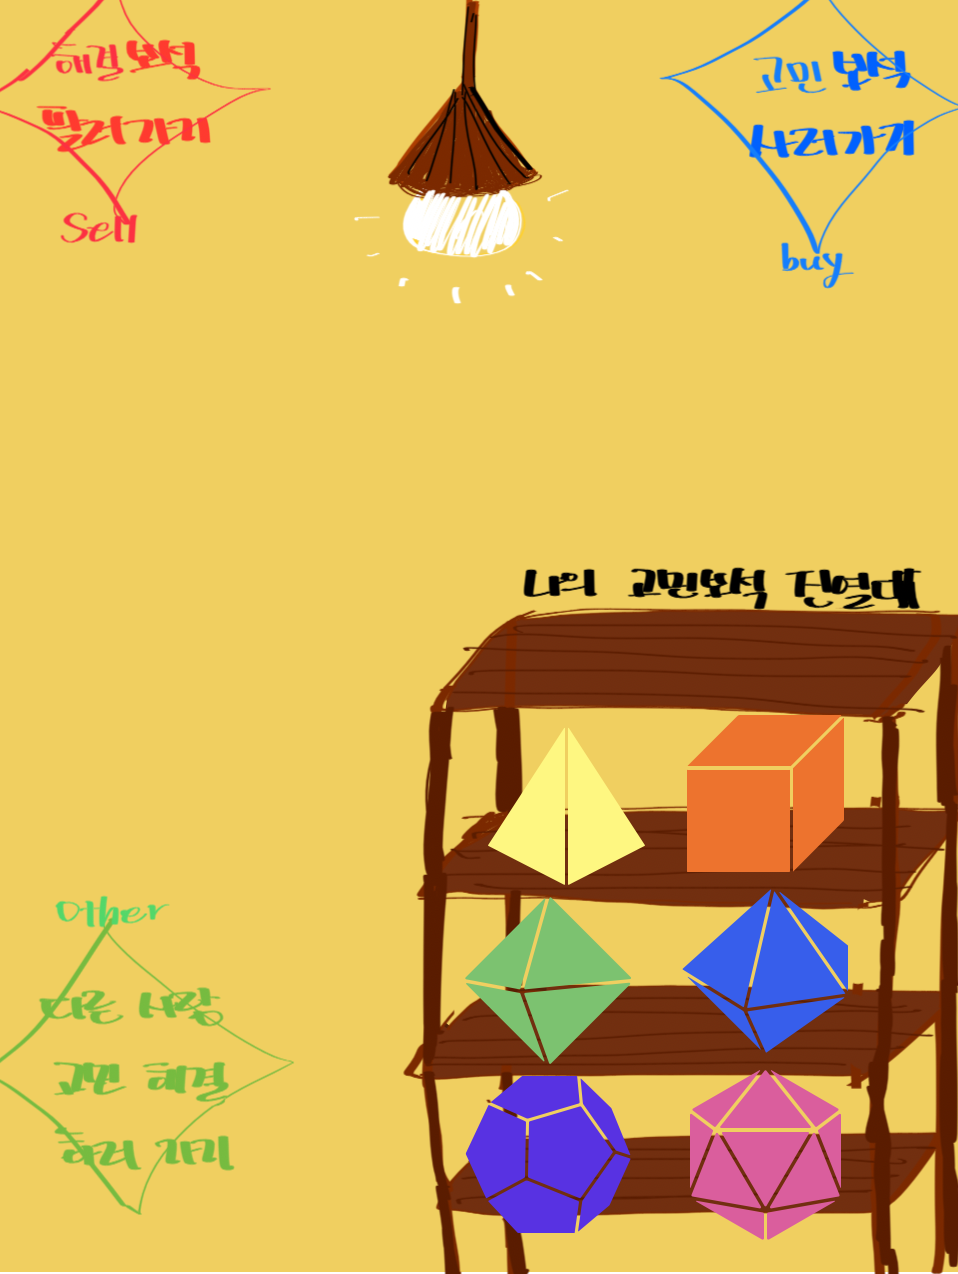 해결 보석
팔러가기
Sell
고민 보석
사러가기
buy
나의 고민보석 진열대
Other
다른 사람
고민 해결
하러 가기